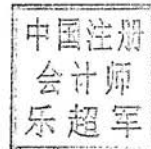 中国注册
会计师
乐超军